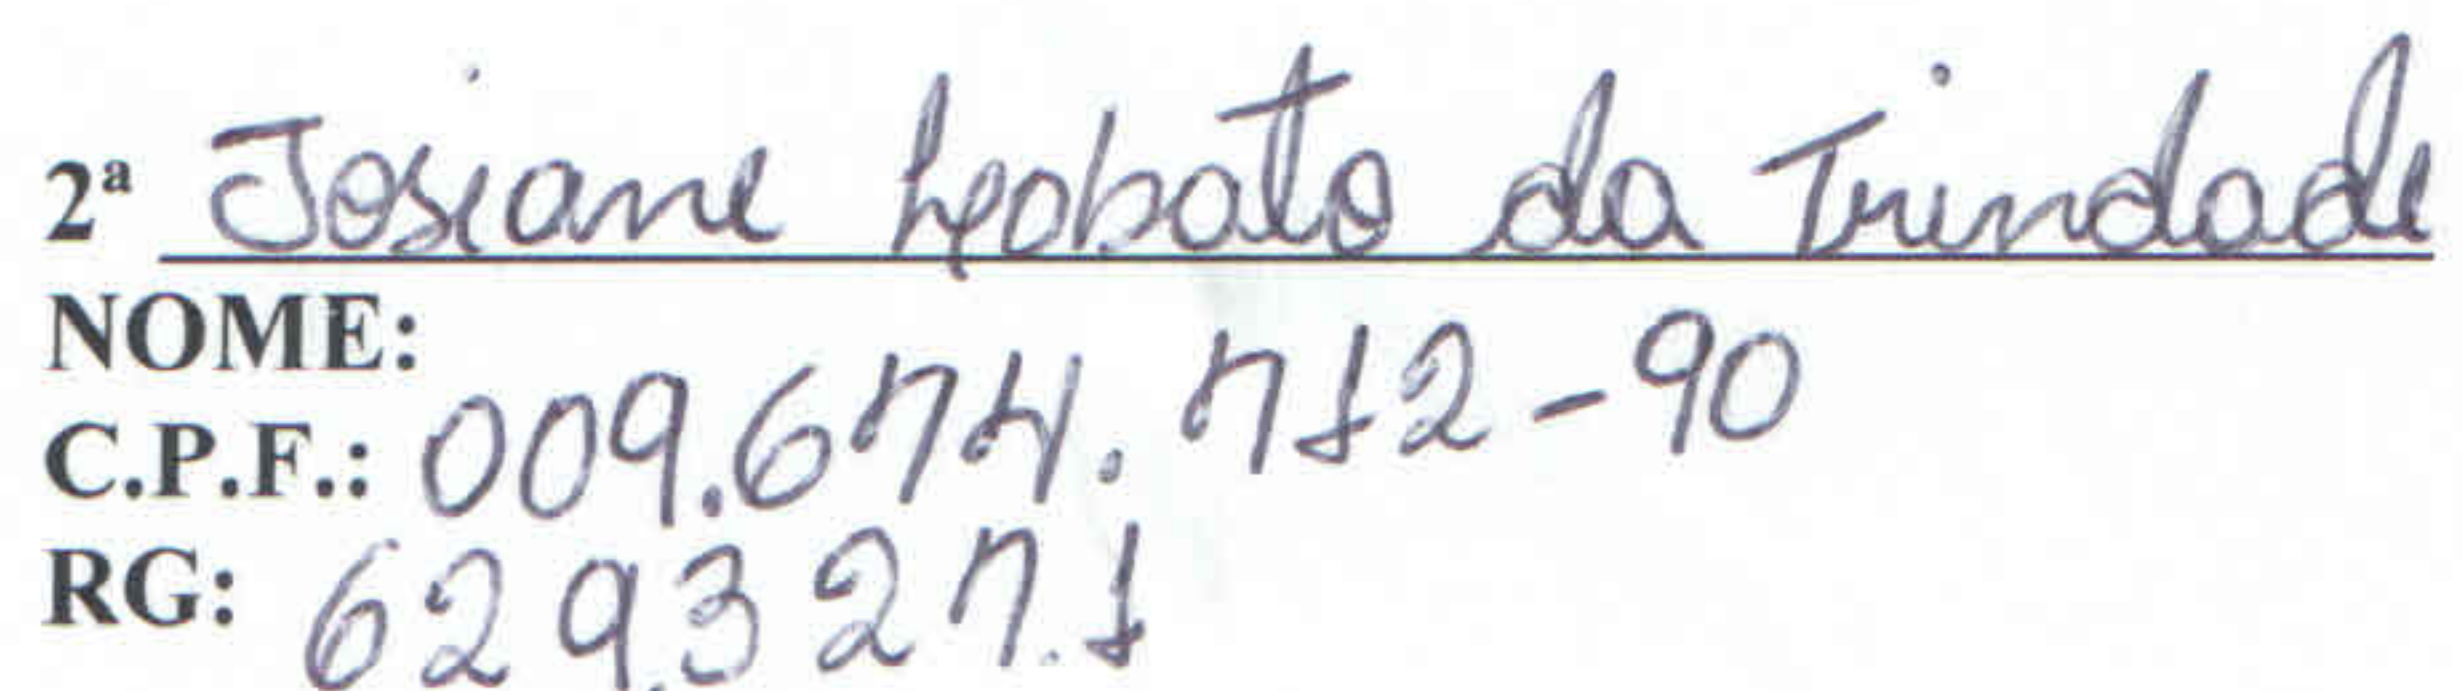 2ª Josiane Lobato da Trindade
NOME:
C.P.F.: 009.674.712-90
RG: 629.327.1